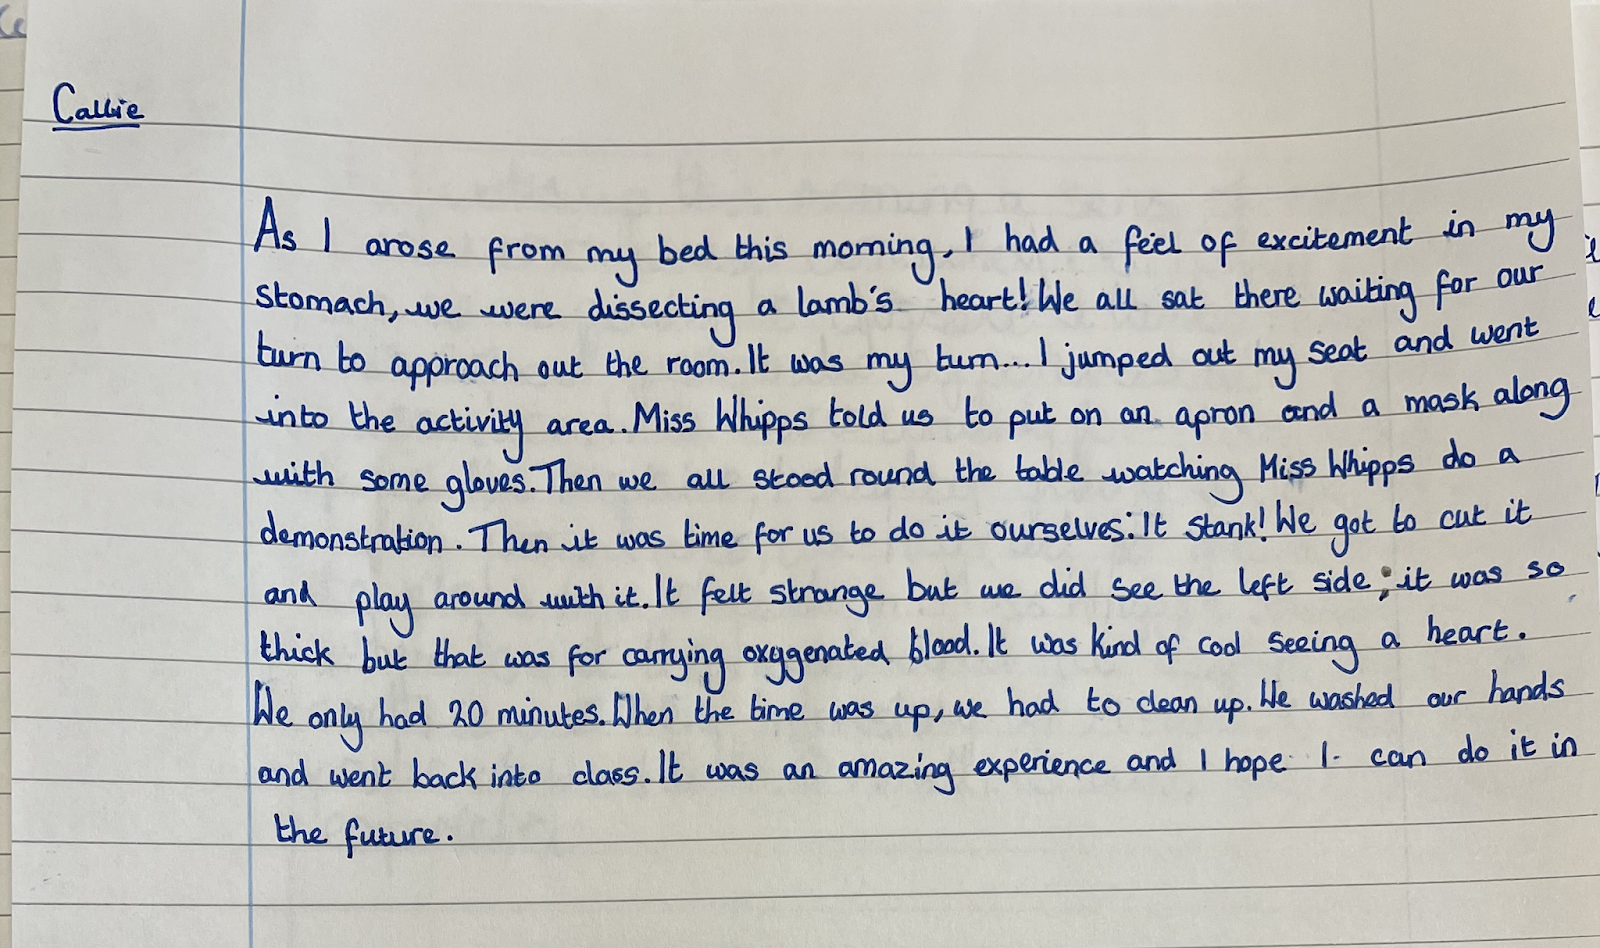 Callie
As I arose from my bed this morning, I had a feel of excitement in my
stomach, we were dissecting a lamb's heart! We all sat there waiting for our
turn to approach out the room. It was my turn... I jumped out my seat and went
into the activity area. Miss Whipps told us to put on an apron and a mask along
with some gloves. Then we all stood round the table watching Miss Whipps do a
demonstration. Then it was time for us to do it ourselves: It stank! We got to cut it
and play around with it. It felt strange but we did see the left side; it was so
thick but that was for carrying oxygenated blood. It was kind of cool seeing a heart.
We only had 20 minutes. When the time was up, we had to clean up. We washed our hands
and went back into class. It was an amazing experience and I hope I can do it in
the future.